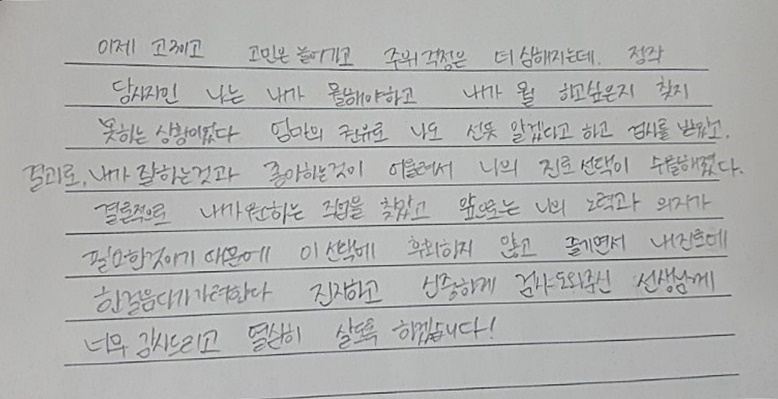 이제 고3이고 고민은 늘어가고 주위 걱정은 더 심해지는데. 정작
당사자인 나는 내가 뭘해야하고 내가 뭘 하고싶은지 찾지
못하는 상황이었다 엄마의 권유로 나도 선뜻 알겠다고 하고 검사를 받았고.
결과로, 내가 잘하는것과 좋아하는것이 어울려서 나의 진로선택이 수월해졌다.
결론적으로 내가원하는 직업을 찾았고 앞으로는 나의 노력과 의지가
필요한것이기 때문에 이 선택에 후회하지 않고 즐기면서 내진로에
한걸음다가가려한다 진지하고 신중하게 검사도와주신 선생님께
너무 감사드리고 열심히 살도록 하겠습니다!